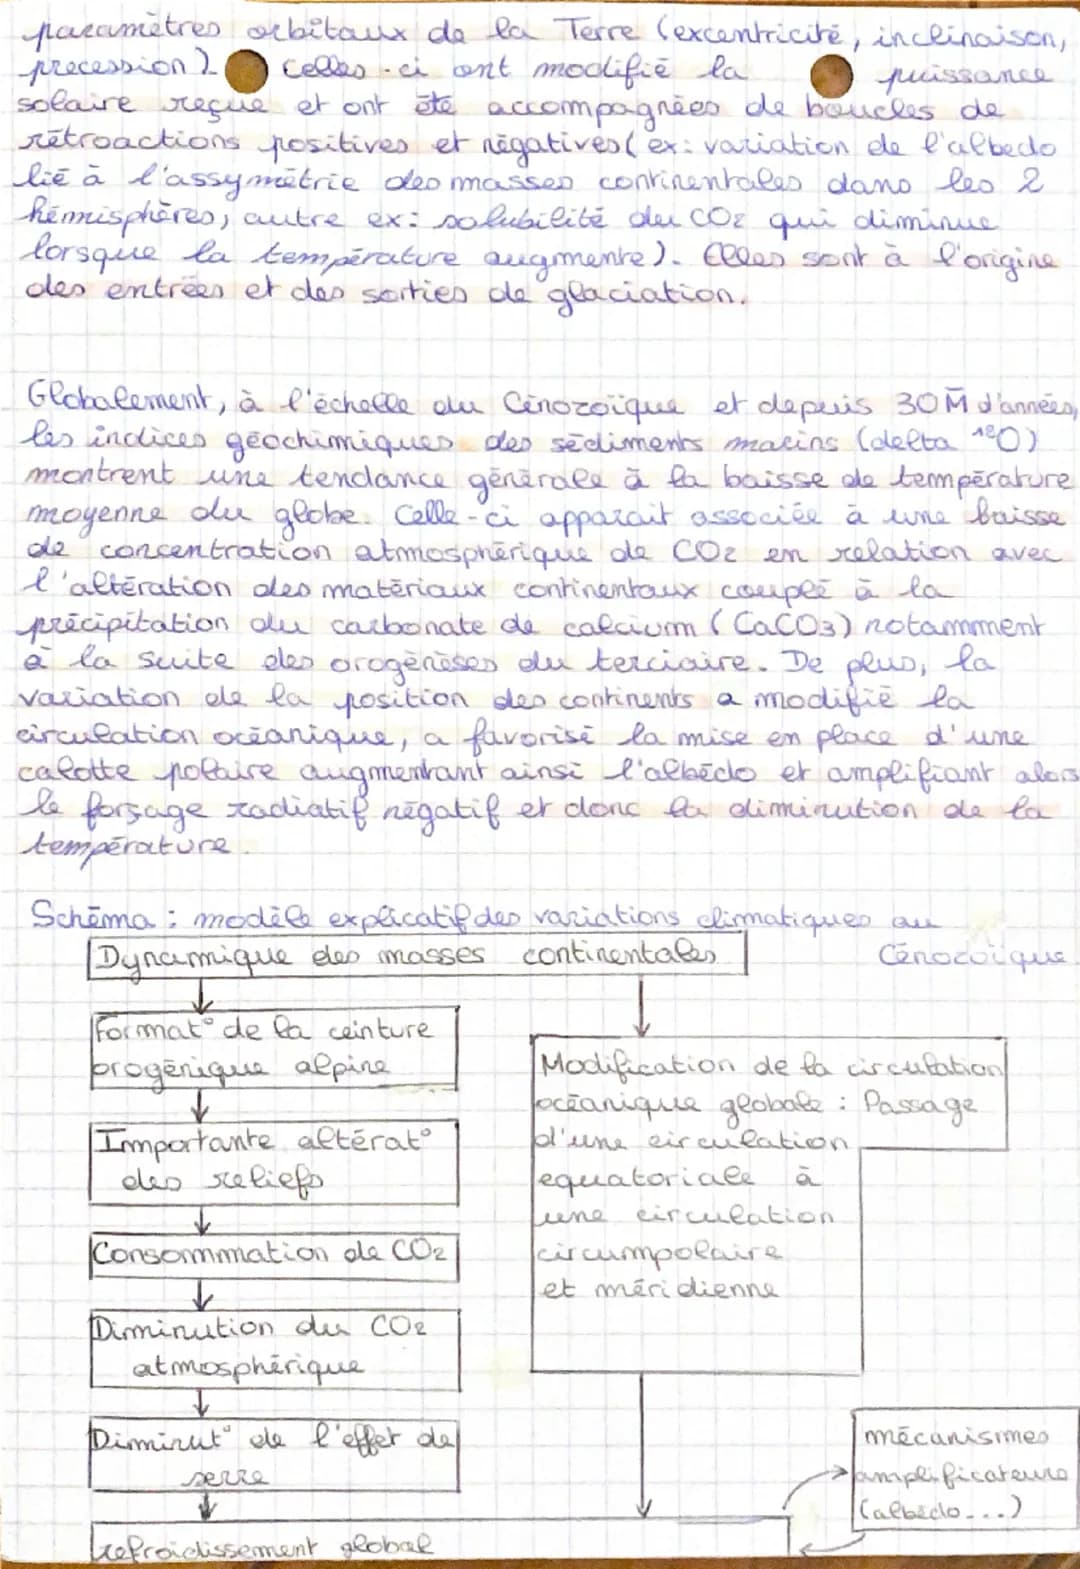 paramètres orbitaux de la Terre (excentricité, inclinaison,
precession). Celles-ci ont modifié la puissance
solaire reçue et ont été accompagnées de boucles de
rétroactions positives et négatives (ex: variation de l'albedo
lié à l'assymétrie des masses continentales dans les 2
hémisphères, autre ex: solubilité du CO2 qui diminue
lorsque la température augmente). Elles sont à l'origine
des entrées et des sorties de glaciation.
Globalement, à l'échelle du Cénozoïque et depuis 30 M d'années,
les indices géochimiques des sédiments marins (delta 18O)
montrent une tendance générale à la baisse de température
moyenne du globe. Celle-ci apparait associée à une baisse
de concentration atmosphérique de CO2 en relation avec
l'altération des matériaux continentaux couplé à la
précipitation du carbonate de calcium (CaCO3) notamment
à la suite des orogénèses du terciaire. De plus, la
variation de la position des continents a modifié la
circulation océanique, a favorisé la mise en place d'une
calotte polaire augmentant ainsi l'albédo et amplifiant alors
le forçage radiatif négatif et donc la diminution de la
température.
Schéma : modèle explicatif des variations climatiques au
Cénozoïque.
Dynamique des masses continentales
Format° de la ceinture
orogénique alpine
Importante altérat°
des reliefs
Consommation de CO2
Diminution du CO2
atmosphérique
Diminut° de l'effet de
serre
refroidissement global
Modification de la circulation
océanique globale : Passage
d'une circulation
equatoriale à
une circulation
circumpolaire
et méridienne
mécanismes
amplificateurs
(albédo...)